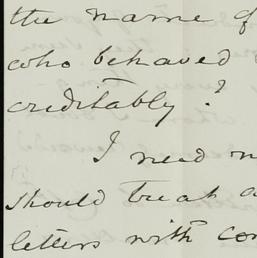 the name of
who behaved
creditably?
I need n
should treat a
letters with con